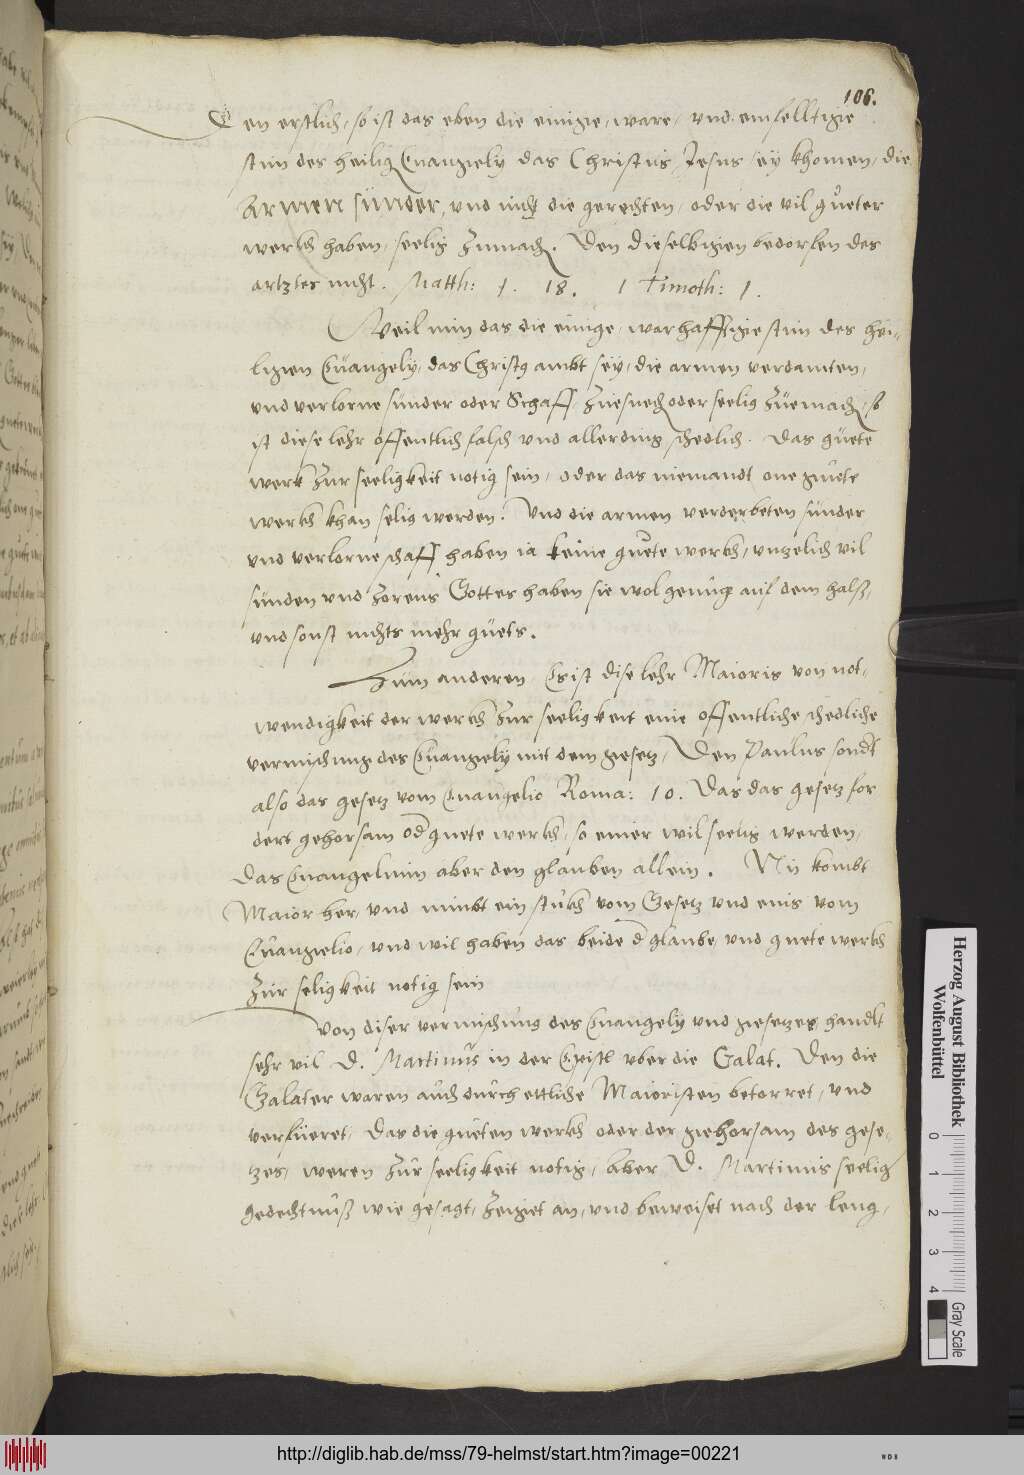 106.
Den erstlich, so ist das eben die einigie, ware, und einfelltigie
stim des heilig Euangiely das Christus Jesus sey khomen, die
armen sünder, und nicht die gerechten, oder die vil gueter
werkh haben, seelig zumach. Den dieselbigien bedorfen des
artztes nicht. Matth: 1. 18. 1 Timoth: 1.
Weil nun das die einige, warhafftigie stim des hei-
ligien Euangiely, das Christ9 ambt sey, die armen verdamten,
und verlorne sünder oder Schaff, zuesuech oder seelig zuemach, so
ist diese lehr öffentlich falsch und allerding schedlich. Das guete
werkh zur seeligkeit notig sein, oder das niemandt one guete
werkh khan selig werden. Und die armen verderbeten sünder
und verlorne schaff haben ia keine guete werkh, unzelich vil
sünden und zorens Gottes haben sie wol genug auf dem halß,
und sonst nichts mehr guets.
Zum anderen, Es ist dise lehr Maioris von not-
wendigkeit der werkh zur seeligkeit eine offentliche schedliche
vermischung des Euangiely mit dem giesetz, Den Paulus sondt
also das gesetz vom Euangelio Roma: 10. Das das gesetz for
dert gehorsam od guete werkh, so einer wil seelig werden,
das Euangelium aber den glauben allein. Nu kombt
Maior her, und nimbt ein stukh vom Gesetz und eins vom
Euangielio, und wil haben das beide d glaube und guete werkh
zur seligkeit notig sein
Von diser vermischung des Euangely und giesetzes handlt
sehr vil D. Martinus in der Epistl uber die Galat. Den die
Galater waren auch durch ettliche Maioristen betorret, und
verfüeret, Das die gueten werkh oder der giehorsam des gese-
tzes, weren zur seeligkeit notig, Aber D. Martinus seelig
gedechtnuß wie gesagt, zeigiet an, und beweiset nach der leng,
Herzog August Bibliothek
Wolfenbüttel
0 1 2 3 4
Gray Scale
http://diglib.hab.de/mss/79-helmst/start.htm?image=00221
WDB